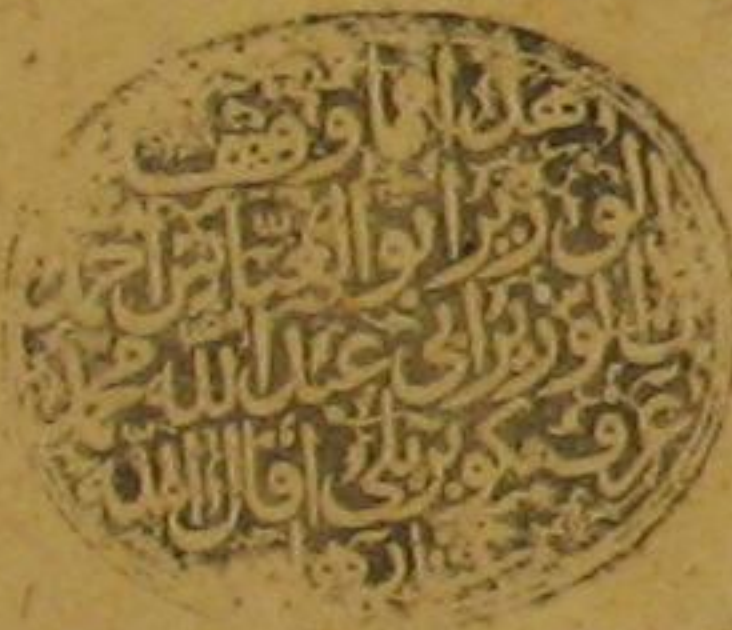 هذا مما وقف
الوزير ابو العباس احمد
بن الوزير ابي عبد الله محمد
عرف بكوبريلي اقال الله
عثارهما